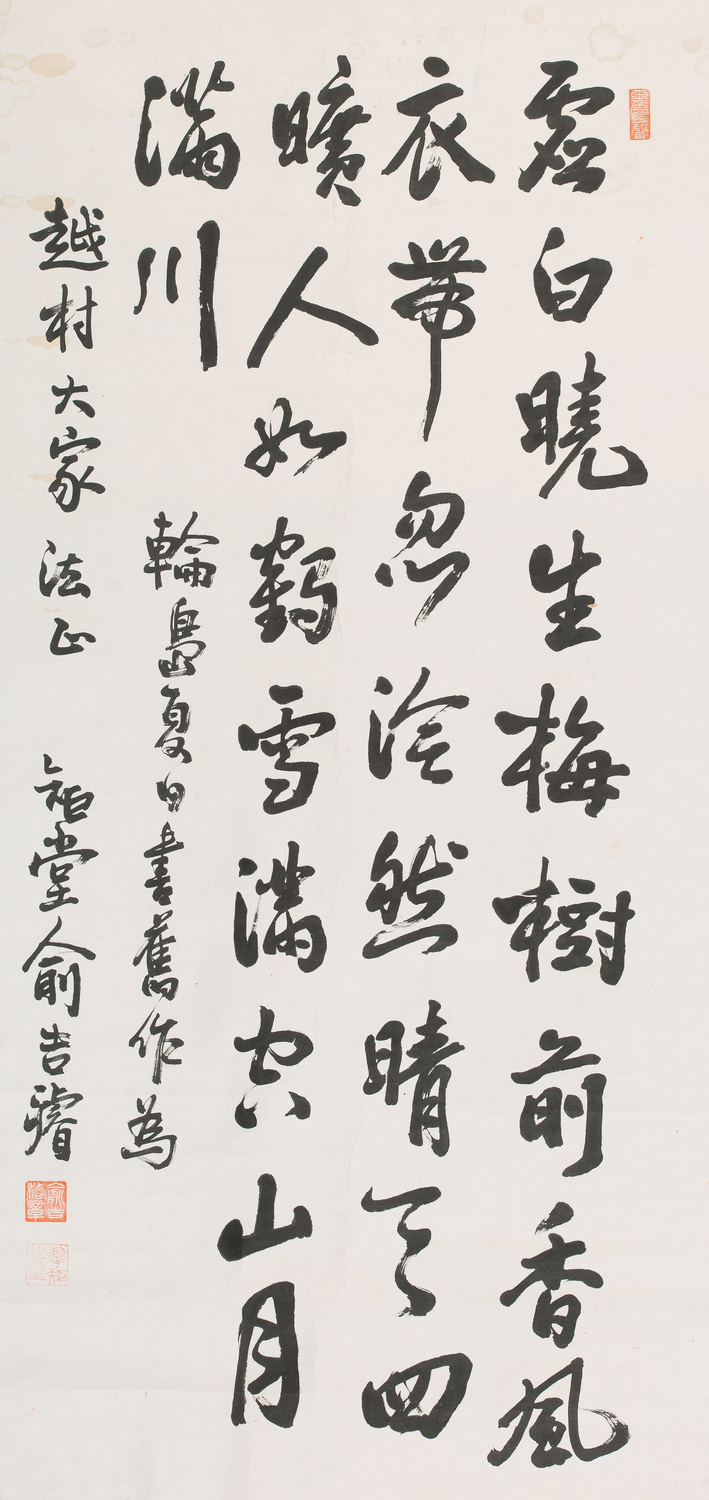 虛白曉生梅樹前香風
衣帶忽泠然晴天四
曠人如鶴雪滿空山月
滿川
輪島夏日書舊作為
越村大家法正 矩堂兪吉濬
兪吉濬章